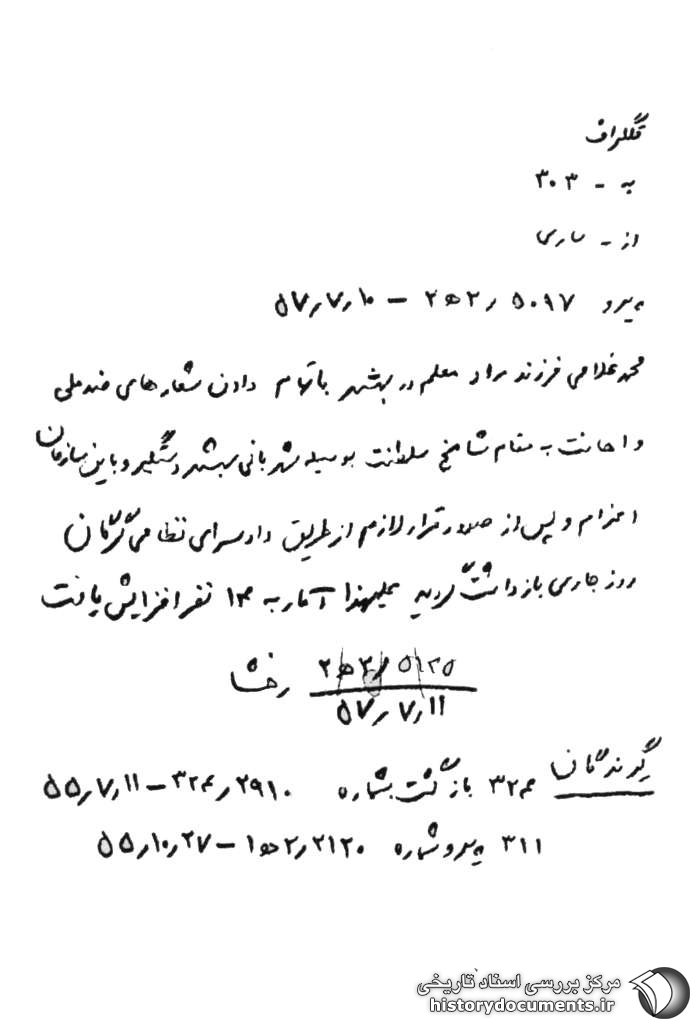 تلگراف
به - ۳۰۳
از - ساری
پیرو ۵۰۹۷ /۲ ه ۲ - ۵۷/۷/۱۰
محمد غلامی فرزند مراد معلم در بهشهر باتهام دادن شعارهای ضد ملی
و اهانت به مقام شامخ سلطنت بوسیله شهربانی بهشهر دستگیر و باین سازمان
اعزام و پس از صدور قرار لازم از طریق دادسرای نظامی گرگان
روز جاری بازداشت گردید علیهذا آمار به ۱۴ نفر افزایش یافت
۵۱۲۵ /۲ ه ۲
رخشا
۵۷/۷/۱۱
گیرندگان
۳۲۴ بازگشت بشماره ۳۲۴/۲۹۱۰ - ۵۵/۷/۱۱
۳۱۱ پیرو شماره ۲۱۲۰ /۲ ه ۱ - ۵۵/۱۰/۲۷
مرکز بررسی اسناد تاریخی
historydocuments.ir